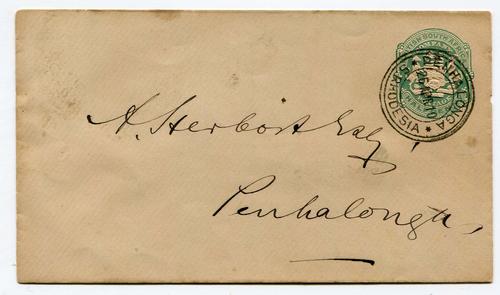 BRITISH SOUTH AFRICA
PENHALONGA
S. RHODESIA
A. Herbst Esq,
Penhalonga,